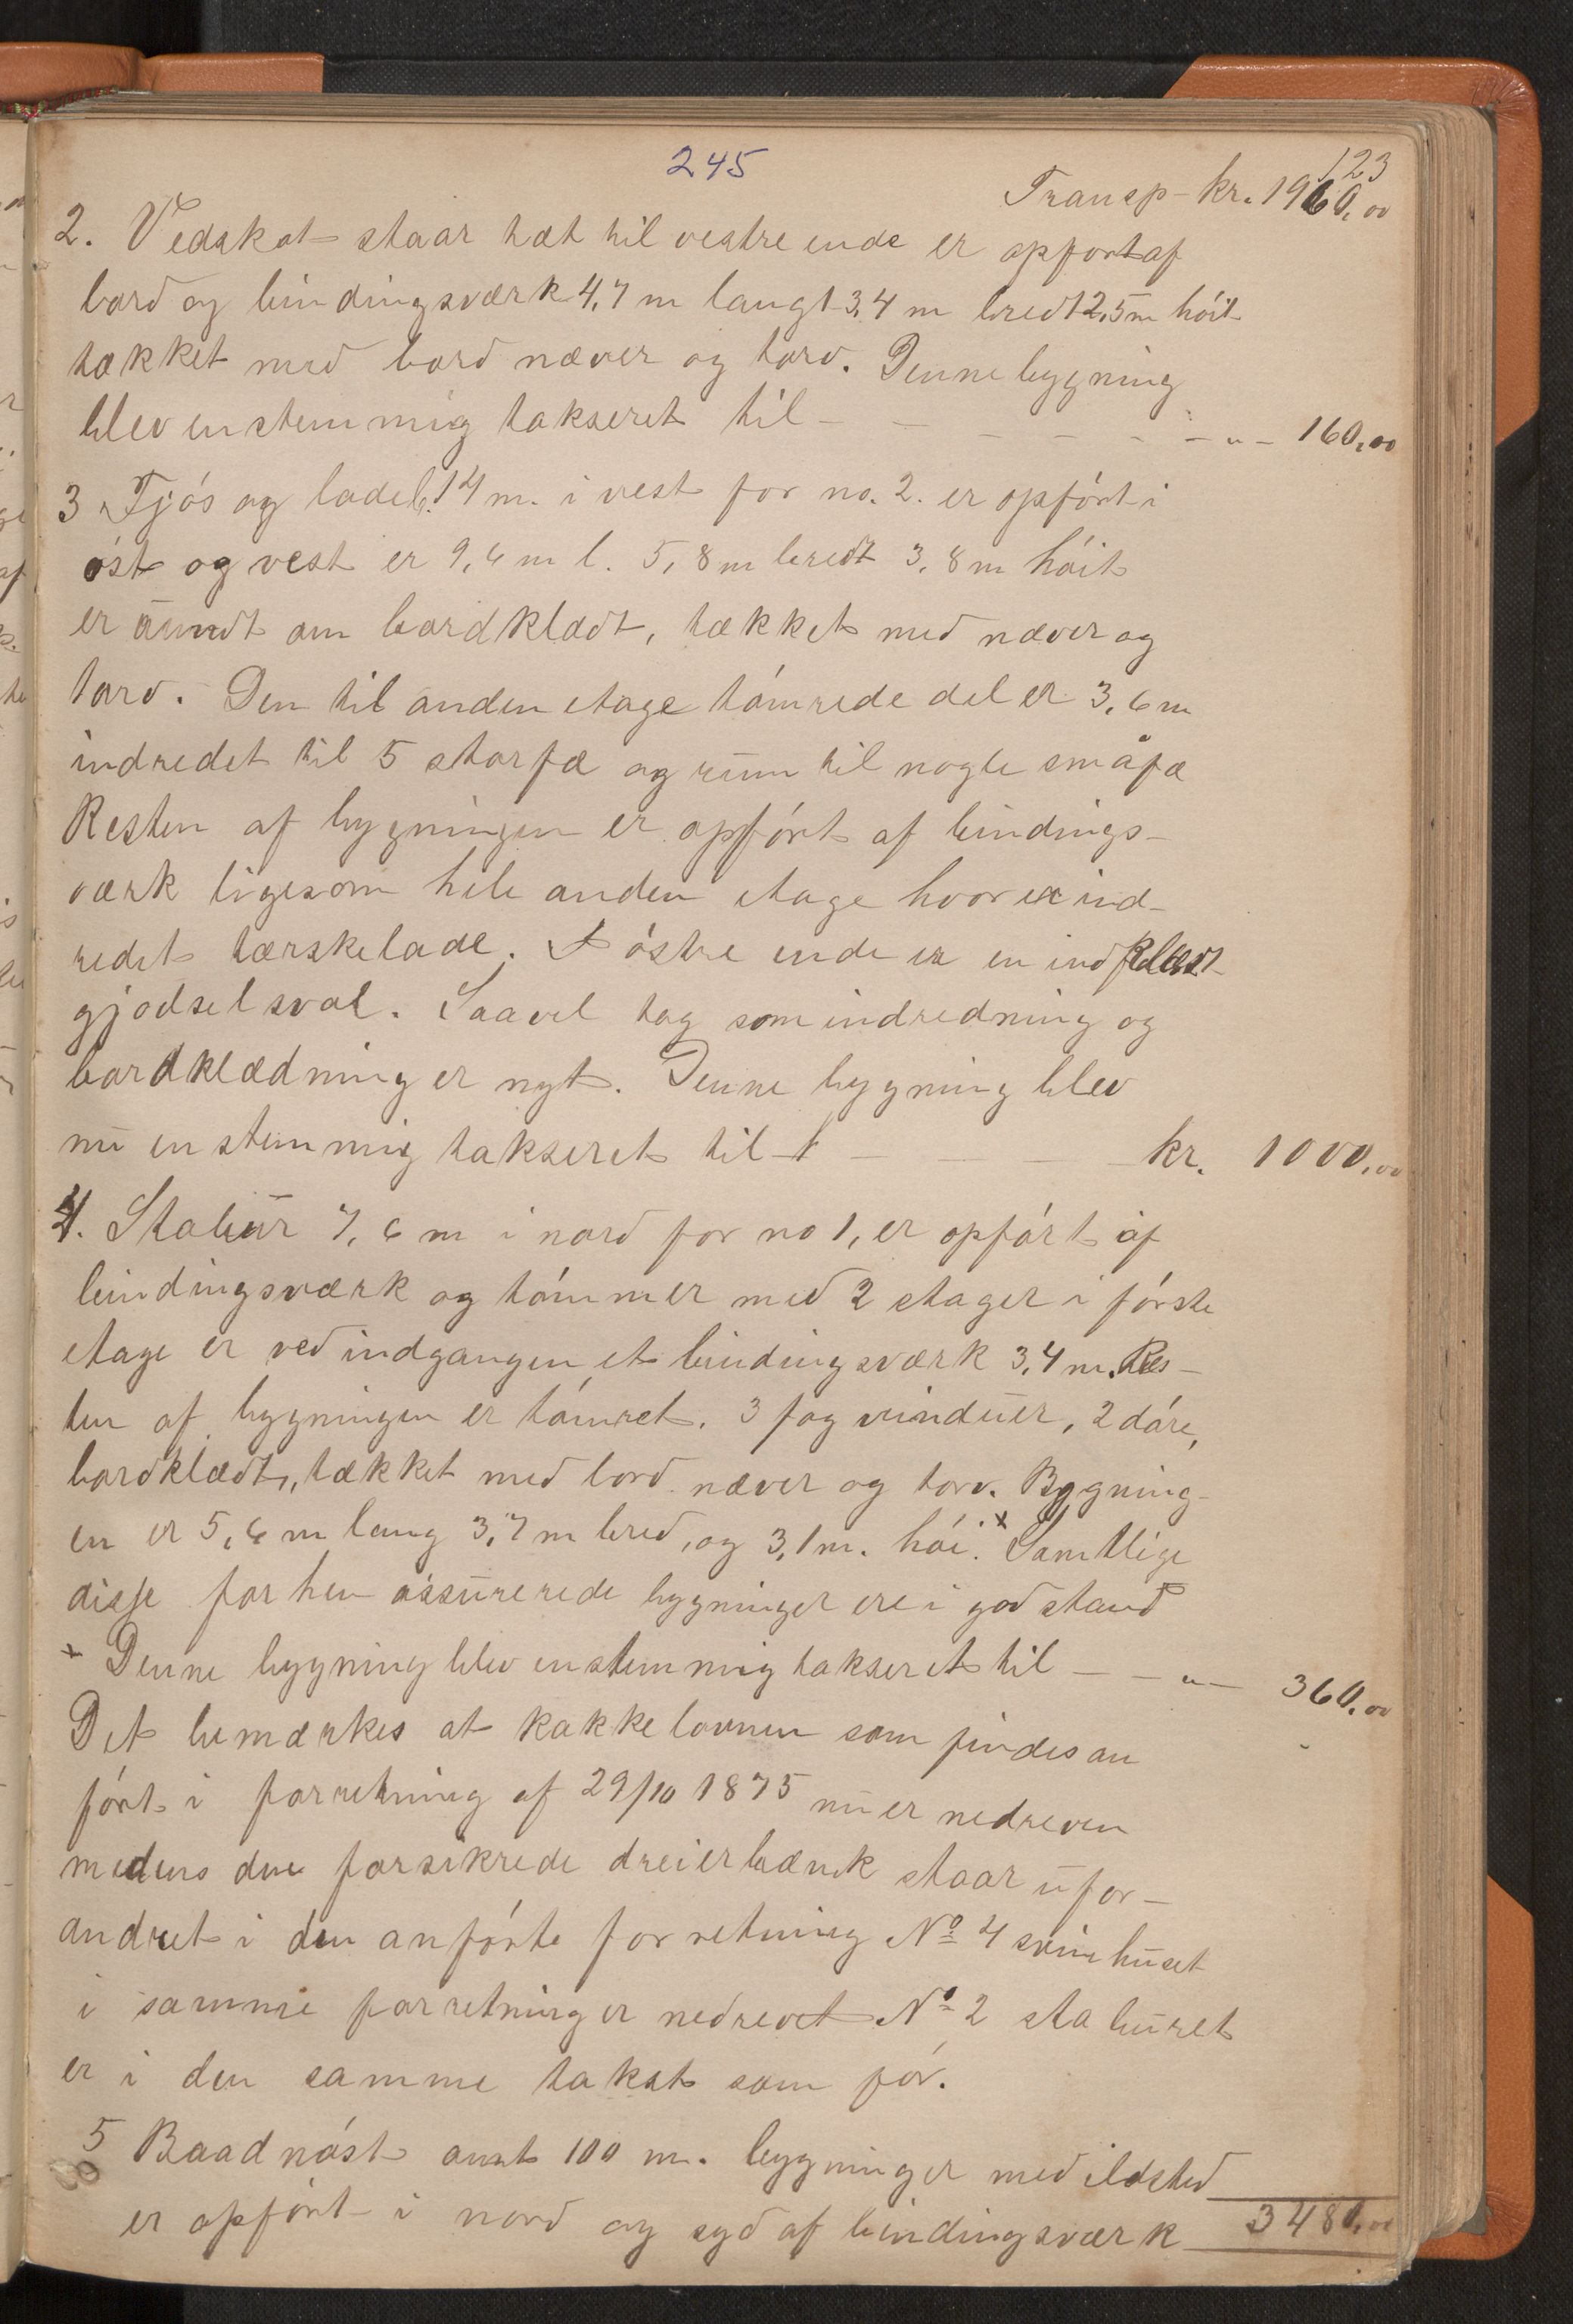 245
123
Transp - kr. 1960,00
2. Vedskot staar tæt til vestre ende er opfort af
bord og bindingsværk 4,7 m langt 3,4 m bredt 2,5 m höit
tækket med bord næver og torv. Denne bygning
blev enstemmig takseret til - - - - - - „ - 160,00
3 Fjös og lade 6,14 m. i vest for no. 2. er opfört i
öst og vest er 9,6 m l. 5,8 m bredt 3,8 m höit
er rundt om bordklædt, tækket med næver og
torv. Den til anden etage tömrede del er 3,6 m
indredet til 5 storfæ og rum til nogle småfæ
Resten af bygningen er opfört af bindings-
værk ligesom hele anden etage hvor er ind-
redet tærskelade. I östre ende er en indklædt
gjødselsval. Saavel tag som indredning og
bordklædning er nyt. Denne bygning blev
nu enstemmig takseret til - - - - kr. 1000,00
4. Stabur 7,6 m i nord for no 1, er opfört af
bindingsværk og tömmer med 2 etager i förste
etage er ved indgangen et bindingsværk 3,4 m. Res-
ten af bygningen er tömret. 3 fag vinduer, 2 döre,
bordklædt, tækket med bord næver og torv. Bygning-
en er 5,6 m lang 3,7 m bred, og 3,1 m. höi. x Samtlige
disse forhen assurerede bygninger ere i god stand
x Denne bygning blev enstemmig takseret til - - „ - 360,00
Det bemærkes at kakkelovnen som findes an
fört i forretning af 29/10 1875 nu er nedreven
medens den forsikrede dreierbænk staar ufor-
andret i den anförte forretning No 4 svinehuset
i samme forretning er nedrevet No 2 staburet
er i den samme takst som för.
5 Baadnöst omt 100 m. bygninger med ildsted
er opfört i nord og syd af bindingsværk 3480,00